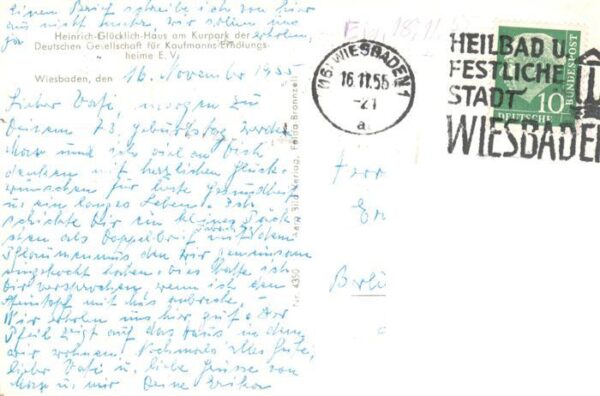 einen Brief schreibe ich von hier
aus nicht mehr, wir sollen uns
ja erholen,
Heinrich-Glücklich-Haus am Kurpark der
Deutschen Gesellschaft für Kaufmanns-Erholungs-
heime E.V.
Wiesbaden, den 16. November 1955
Lieber Vati, morgen zu
Deinem 73. Geburtstag werden
und ich viel an Dich
denken mit herzlichen Glück-
wünschen für beste Gesundheit
u. ein langes Leben. Ich
schickte Dir ein kleines Päck-
chen als Doppelbrief mit dem
Pflaumenmus den wir gemeinsam
eingekocht haben. Dies hatte ich
Dir versprochen, wenn ich den
Steintopf mit bis anbreche.
Wir erholen uns hier gut. Der
Pfeil zeigt auf das Haus in dem
wir wohnen. Nochmals alles Gute,
lieber Vati u. liebe Grüsse von
u. mir Deine Erika
Nr. 4350
Verlag, Fulda-Bronnzell
18.11.
(16) WIESBADEN 1
16.11.55
-21
a
HEILBAD U
FESTLICHE
STADT
WIESBADEN
10
DEUTSCHE
BUNDESPOST
Herrn
Berlin